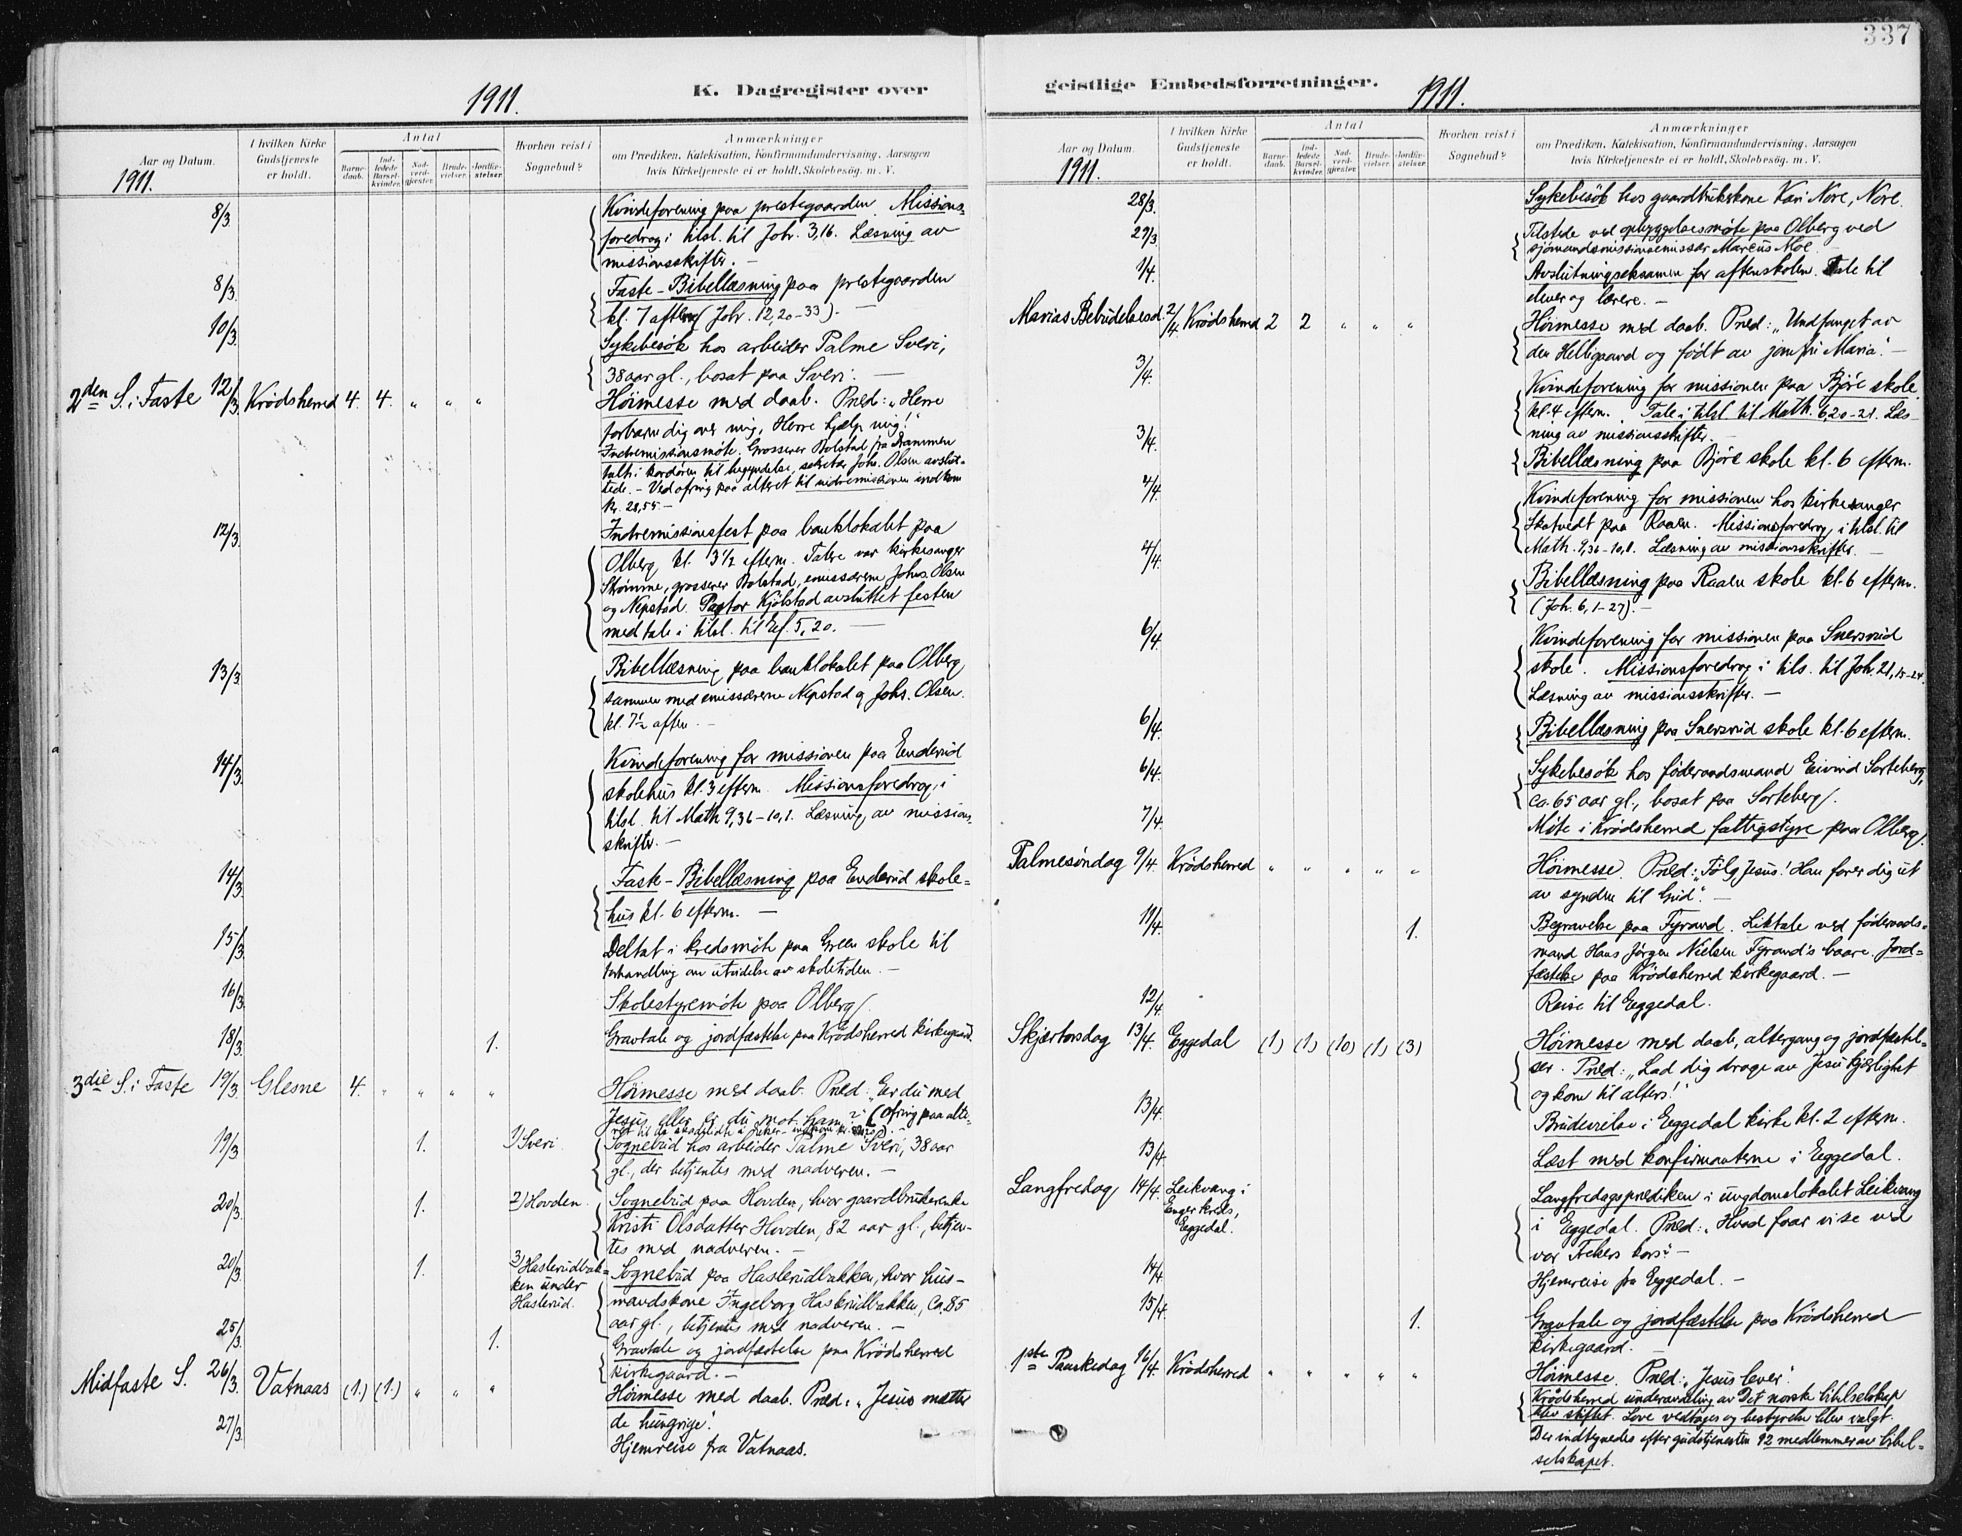 337
1911.
K. Dagregister over
Aar og Datum.
I hvilken Kirke Gudstjeneste er holdt.
Antal
Barne-daab.
Ind-ledede Barsel-kvinder.
Nad-verd-gjester.
Brude-vielser.
Jordfæ-stelser.
Hvorhen reist i Sognebud?
Anmærkninger
om Prædiken, Katekisation, Konfirmandundervisning, Aarsagen
hvis Kirketjeneste ei er holdt, Skolebesøg m. V.
1911.
8/3. Kvindeforening paa prestegaarden. Missions-
foredrag i tilsl. til Joh. 3,16. Læsning av
missionsskrifter. —
8/3. Faste-Bibellæsning paa prestegaarden
kl. 7 aften (Joh. 12,20-33). —
10/3. Sykebesøk hos arbeider Palme Sveri,
38 aar gl., bosat paa Sveri. —
2den S. i Faste 12/3. Krødsherred 4. 4. " " " Høimesse med daab. Præd: "Herre
forbarm dig over mig, Herre hjælp mig!"
Indremissionsmøte. Grosserer Bolstad fra Drammen
talte i kordøren til begyndelse, sekretær Johs. Olsen avslut-
tede. — Ved ofring paa alteret til indremissionen indkom
kr. 28,55. —
12/3. Indremissionsfest paa banklokalet paa
Olberg kl. 3 1/2 efterm. Talere var kirkesanger
Strømme, grosserer Bolstad, emissærerne Johs. Olsen
og Nepstad. Pastor Kjølstad avsluttet festen
med tale i tilsl. til Ef. 5,20. —
13/3. Bibellæsning paa banklokalet paa Olberg
sammen med emissærerne Nepstad og Johs. Olsen
kl. 7 1/2 aften. —
14/3. Kvindeforening for missionen paa Enderud
skolehus kl. 3 efterm. Missionsforedrag i
tilsl. til Math 9,36-10,1. Læsning av missions-
skrifter. —
14/3. Faste-Bibellæsning paa Enderud skole-
hus kl. 6 efterm. —
15/3. Deltat i kredsmøte paa Green skole til
forhandling om utvidelse av skoletiden. —
16/3. Skolestyremøte paa Olberg.
18/3. 1. Gravtale og jordfæstelse paa Krødsherred kirkegaard.
3die S. i Faste 19/3. Glesne 4. " " " " Høimesse med daab. Præd: "Er du med
Jesus eller er du mot ham?" (Ofring paa alte-
19/3. 1. 1) Sveri. Sognebud hos arbeider Palme Sveri, 38 aar
gl., der betjentes med nadveren. —
20/3. 1. 2) Hovden. Sognebud paa Hovden, hvor gaardbrukerenke
Kristi Olsdatter Hovden, 82 aar gl., betjen-
tes med nadveren. —
20/3. 1. 3) Haslerudbak-
ken under
Haslerud. Sognebud paa Haslerudbakken, hvor hus-
mandskone Ingeborg Haslerudbakken, ca. 85
aar gl., betjentes med nadveren. —
25/3. 1. Gravtale og jordfæstelse paa Krødsherred
kirkegaard. —
Midfaste S. 26/3. Vatnaas (1.) (1.) " " " Høimesse med daab. Præd: "Jesus mætter
de hungrige".
27/3. Hjemreise fra Vatnaas.
geistlige Embedsforretninger.
1911.
Aar og Datum.
I hvilken Kirke Gudstjeneste er holdt.
Antal
Barne-daab.
Ind-ledede Barsel-kvinder.
Nad-verd-gjester.
Brude-vielser.
Jordfæ-stelser.
Hvorhen reist i Sognebud?
Anmærkninger
om Prædiken, Katekisation, Konfirmandundervisning, Aarsagen
hvis Kirketjeneste ei er holdt, Skolebesøg m. V.
1911.
28/3. Sykebesøk hos gaardbrukskone Kari Nore, Nore.
29/3. Tilstede ved opbyggelsesmøte paa Olberg ved
sjømandsmissionsemissær Marcus Moe.
1/4. Avslutningseksamen for aftenskolen. Tale til
elever og lærere. —
Marias Bebudelsesd. 2/4. Krødsherred 2 2 " " " Høimesse med daab. Præd: "Undfanget av
den Helligaand og født av jomfru Maria". —
3/4. Kvindeforening for missionen paa Bjøre skole
kl. 4 efterm. Tale i tilsl. til Math. 6,20-21. Læs-
ning av missionsskrifter. —
3/4. Bibellæsning paa Bjøre skole kl. 6 efterm.
4/4. Kvindeforening for missionen hos kirkesanger
Skatvedt paa Raaen. Missionsforedrag i tilsl. til
Math. 9,36-10,1. Læsning av missionsskrifter. —
4/4. Bibellæsning paa Raaen skole kl. 6 efterm.
(Joh. 6,1-27). —
6/4. Kvindeforening for missionen paa Snersrud
skole. Missionsforedrag i tils. til Joh. 21,15-24.
Læsning av missionsskrifter. —
6/4. Bibellæsning paa Snersrud skole kl. 6 efterm.
6/4. Sykebesøk hos føderaadsmand Eivind Sorteberg,
ca. 65 aar gl., bosat paa Sorteberg.
7/4. Møte i Krødsherred fattigstyre paa Olberg.
Palmesøndag 9/4. Krødsherred " " " " " Høimesse. Præd: "Følg Jesus! Han fører dig ut
av synden til Gud". —
11/4. 1. Begravelse paa Fyrand. Liktale ved føderaads-
mand Hans Jørgen Nielsen Fyrand's baare. Jord-
fæstelse paa Krødsherred kirkegaard. —
12/4. Reise til Eggedal.
Skjærtorsdag 13/4. Eggedal (1) (1) (10) (1) (3) Høimesse med daab, altergang og jordfæstel-
ser. Præd: "Lad dig drage av Jesu kjærlighet
og kom til alters!"
13/4. Brudevielse i Eggedal kirke kl. 2 efterm.
13/4. Læst med konfirmanterne i Eggedal.
Langfredag 14/4. Leikvang i
Enger kreds,
Eggedal. Langfredagsprædiken i ungdomslokalet Leikvang
i Eggedal. Præd: "Hvad faar vi se ved
vor Frelsers kors?" —
14/4. Hjemreise fra Eggedal. —
15/4. 1. Gravtale og jordfæstelse paa Krødsherred
kirkegaard. —
1ste Paaskedag 16/4. Krødsherred " " " " " Høimesse. Præd: "Jesus lever".
Krødsherred underavdeling av Det norske bibelselskap
blev stiftet. Love vedtoges og bestyrelse blev valgt.
Der indtegnedes efter gudstjenesten 92 medlemmer av bibel-
selskapet.